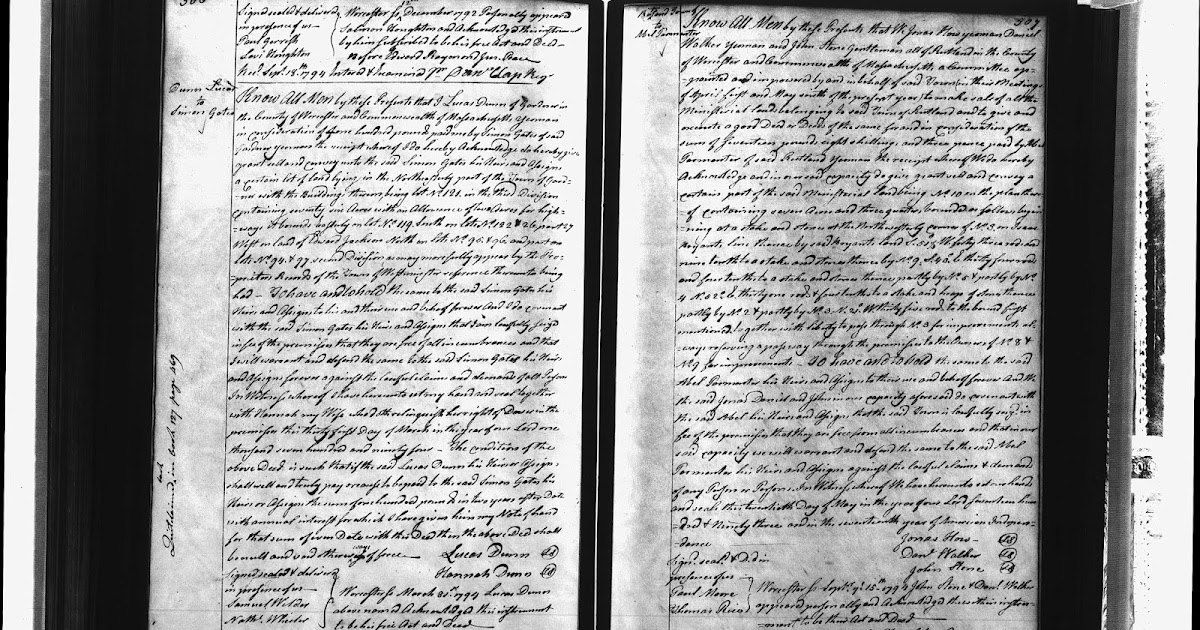 306
Signed sealed & delivered
in presence of us
Paul Gerrish
Levi Houghton
Worcester Ss December 1792 Personally appeared
Salmon Houghton and Acknowledged this instrument
by him Subscribed to be his free Act and Deed
Before Edward Raymond Jus. Peace
Rec. Sept. 18th 1794 Entered & Examined Pr. Danl Clap Reg
Dunn Lucas
to
Simon Gates
Know All Men by these Presents that I Lucas Dunn of Gardner in
the County of Worcester and Commonwealth of Massachusetts Yeoman
in consideration of one hundred pound paid me by Simon Gates of said
Gardner yeoman the receipt whereof I do hereby Acknowledge do hereby give
grant sell and convey unto the said Simon Gates his Heirs and Assigns
a certain lot of land lying in the Northeasterly part of the Town of Gard-
-ner with the Buildings thereon being lot No. 121. in the third Division
containing seventy six Acres with an Allowance of Acres for high-
-ways it bounds easterly on lot No. 119. South on lots No. 122 & 26. part 27
West on land of Edward Jackson North on lots No. 95. & 96. and part on
lots No. 94. & 97. second division as may more fully appear by the Pro-
-prietors Records of the Town of Westminster reference thereunto being
had - To have and to hold the same to the said Simon Gates his
Heirs and Assigns to his and their use and behoof forever And I do covenant
with the said Simon Gates his Heirs and Assigns that I am lawfully seized
in fee of the premises that they are free of all incumbrances and that
I will warrant and defend the same to the said Simon Gates his Heirs
and Assigns forever against the lawful claims and demands of all Persons
In Witness whereof I have hereunto set my hand and seal together
with Hannah my Wife who doth relinquish her right of Dower in the
premises this thirty first Day of March in the year of our Lord one
thousand seven hundred and ninety four - The condition of the
above Deed is such that if the said Lucas Dunn his Heirs or Assigns
shall well and truly pay or cause to be paid to the said Simon Gates his
Heirs or Assigns the sum of one hundred pound in two years after Date
with annual interest for which I have given him my Note of hand
for that sum of even Date with this Deed then the above Deed shall
be null and void otherways of force
Lucas Dunn
Hannah Dunn
Signed sealed & delivered
in presence of us
Samuel Wilder
Nathl. Wheeler
Worcester Ss March 31st 1794 Lucas Dunn
above named Acknowledged this instrument
to be his free Act and Deed
in book 127 page 469
307
Rutland
to
Abel Parmenter
Know All Men by these Presents that We Jonas How yeoman Daniel
Walker Yeoman and John Stone Gentleman all of Rutland in the County
of Worcester and Commonwealth of Massachusetts a Committee ap-
-pointed and impowered by and in behalf of said Town in their Meetings
of April first and May sixth of the present year, to make sale of all the
Ministerial lands belonging to said Town of Rutland and to give and
execute a good Deed or Deeds of the same for and in consideration of the
sum of Seventeen pound, eight shillings, and three pence, paid by Abel
Parmenter of said Rutland Yeoman the receipt whereof We do hereby
Acknowledge and in our said capacity do give grant sell and convey a
certain part of the said Ministerial land being No. 10. on the plan there-
-of containing seven Acres and three quarters, bounded as follows, begin-
-ning at a stake and stones at the Northwesterly corner of No. 5. on Isaac
line thence by said land forty three rod and
nine tenths to a stake and stones thence by No. 9. thirty four rod
and four tenths to a stake and stones thence partly by No. & partly by No.
4. thirty one rod & four tenths to a stake and heap of stones thence
partly by No. 2. & partly by No. 3. N. 25. W. thirty five rod to the bound first
mentioned, together with liberty to pass through No. 3 for improvements al-
-ways reserving a passway through the premises to the Owners of No. 8 &
No. 9. for improvements - To have and to hold the same to the said
Abel Parmenter his Heirs and Assigns to their use and behoof forever And We
the said Jonas Daniel and John in our capacity aforesaid do covenant with
the said Abel his Heirs and Assigns, that the said Town is lawfully seized in
fee of the premises that they are free from all incumbrances and that in our
said capacity we will warrant and defend the same to the said Abel
Parmenter his Heirs and Assigns against the lawful claims & demands
of any Person or Persons. In Witness whereof We have hereunto set our hands
and seals this twentieth Day of May in the year of our Lord seventeen hun-
-dred & Ninety three and in the seventeenth year of American Indepen-
-dance
Jonas How
Danl. Walker
John Stone
Signd. seald. & Dd. in
presence of us
Paul Stone
Thomas Rice
Worcester Ss Sept. 15th 1794 John Stone & Danl. Walker
appeared personally and Acknowledged this instru-
-ment to be their Act and Deed